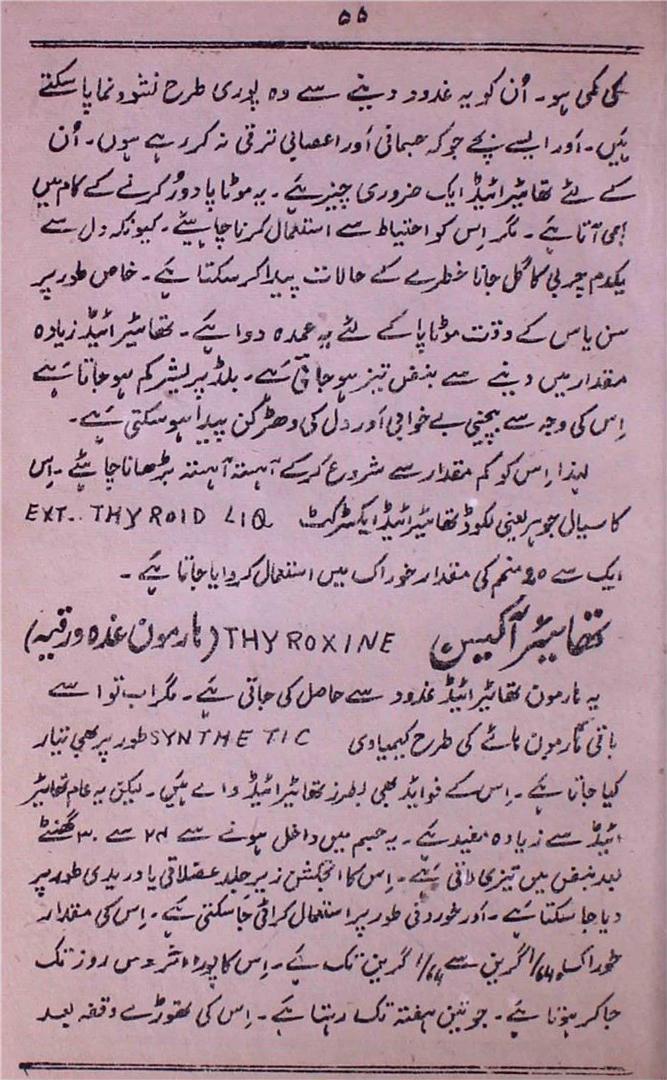 ۵۵
کی کمی ہو۔ اُن کو یہ غدود دینے سے وہ پوری طرح نشوونما پا سکتے
ہیں۔ اَور ایسے بچے جو کہ جسمانی اَور اعصابی ترقی نہ کر رہے ہوں۔ اُن
کے لئے تھائیرائیڈ ایک ضروری چیز ہے۔ یہ موٹاپا دُور کرنے کے کام میں
بھی آتا ہے۔ مگر اِس کو احتیاط سے استعمال کرنا چاہیئے۔ کیونکہ دل سے
یکدم چربی کا گُھل جانا خطرے کے حالات پیدا کر سکتا ہے۔ خاص طور پر
سن یاس کے وقت موٹاپا کے لئے یہ عمدہ دوا ہے۔ تھائیرائیڈ زیادہ
مقدار میں دینے سے نبض تیز ہو جاتی ہے۔ بلڈ پریشر کم ہو جاتا ہے
اِس کی وجہ سے بیچنی بے خوابی اَور دل کی دھڑکن پیدا ہو سکتی ہے۔
لہٰذا اِس کو کم مقدار سے شروع کر کے آہستہ آہستہ بڑھانا چاہئے۔ اِس
کا سیال جوہر یعنی لکوڈ تھائیرائیڈ ایکسٹرکٹ EXT. THYROID LIQ
ایک سے منم کی مقدار خوراک میں استعمال کروایا جاتا ہے۔
تھائیرآکسین THYROXINE (ہارمون غدہ ورقیہ)
یہ ہارمون تھائیرائیڈ غدود سے حاصل کی جاتی ہے۔ مگر اب تو اسے
باقی ہارمون ہائے کی طرح کیمیاوی SYNTHETIC طور پر بھی تیار
کیا جاتا ہے۔ اِس کے فوائد بھی بطرز تھائیرائیڈ والے ہیں۔ لیکن یہ عام تھائیر
ائیڈ سے زیادہ مفید ہے۔ یہ جسم میں داخل ہونے سے ۲۴ سے ۳۰ گھنٹے
بعد نبض میں تیزی لاتی ہے۔ اِس کا انجکشن زیر جلد عضلاتی یا وریدی طور پر
دیا جا سکتا ہے۔ اَور خوردنی طور پر استعمال کرائی جا سکتی ہے۔ اِس کی مقدار
خوراک گرین سے گرین تک ہے۔ اِس کا پورا اثر دس روز تک
جا کر ہوتا ہے۔ جو تین ہفتہ تک رہتا ہے۔ اِس کی تھوڑے وقفہ بعد